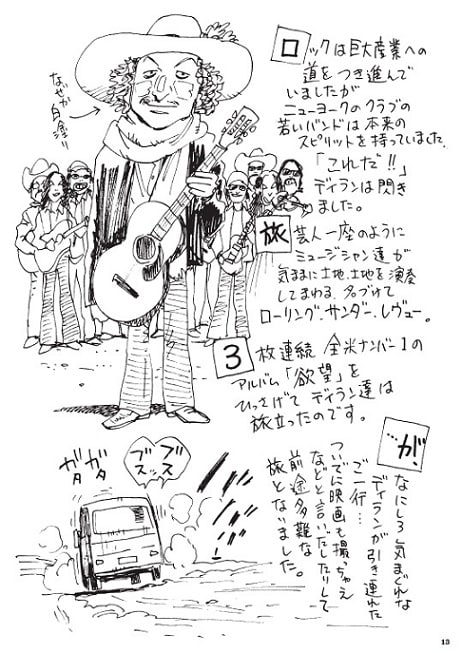 なぜか
白塗り
ロックは巨大産業への
道をつき進んで
いましたが
ニューヨークのクラブの
若いバンドは本来の
スピリットを持っていました。
「これだ!!」
ディランは閃き
ました。
旅芸人一座のように
ミュージシャン達が
気ままに土地、土地を演奏
してまわる。名づけて
ローリング・サンダー・レヴュー。
3枚連続 全米ナンバー1の
アルバム「欲望」を
ひっさげて ディラン達は
旅立ったのです。
…が、
なにしろ気まぐれな
ディランが引き連れた
ご一行…
ついでに映画も撮っちゃえ
などと言いだしたりして
前途多難な
旅となりました。
ガタ
ガタ
ブスッ
ブスッ
13